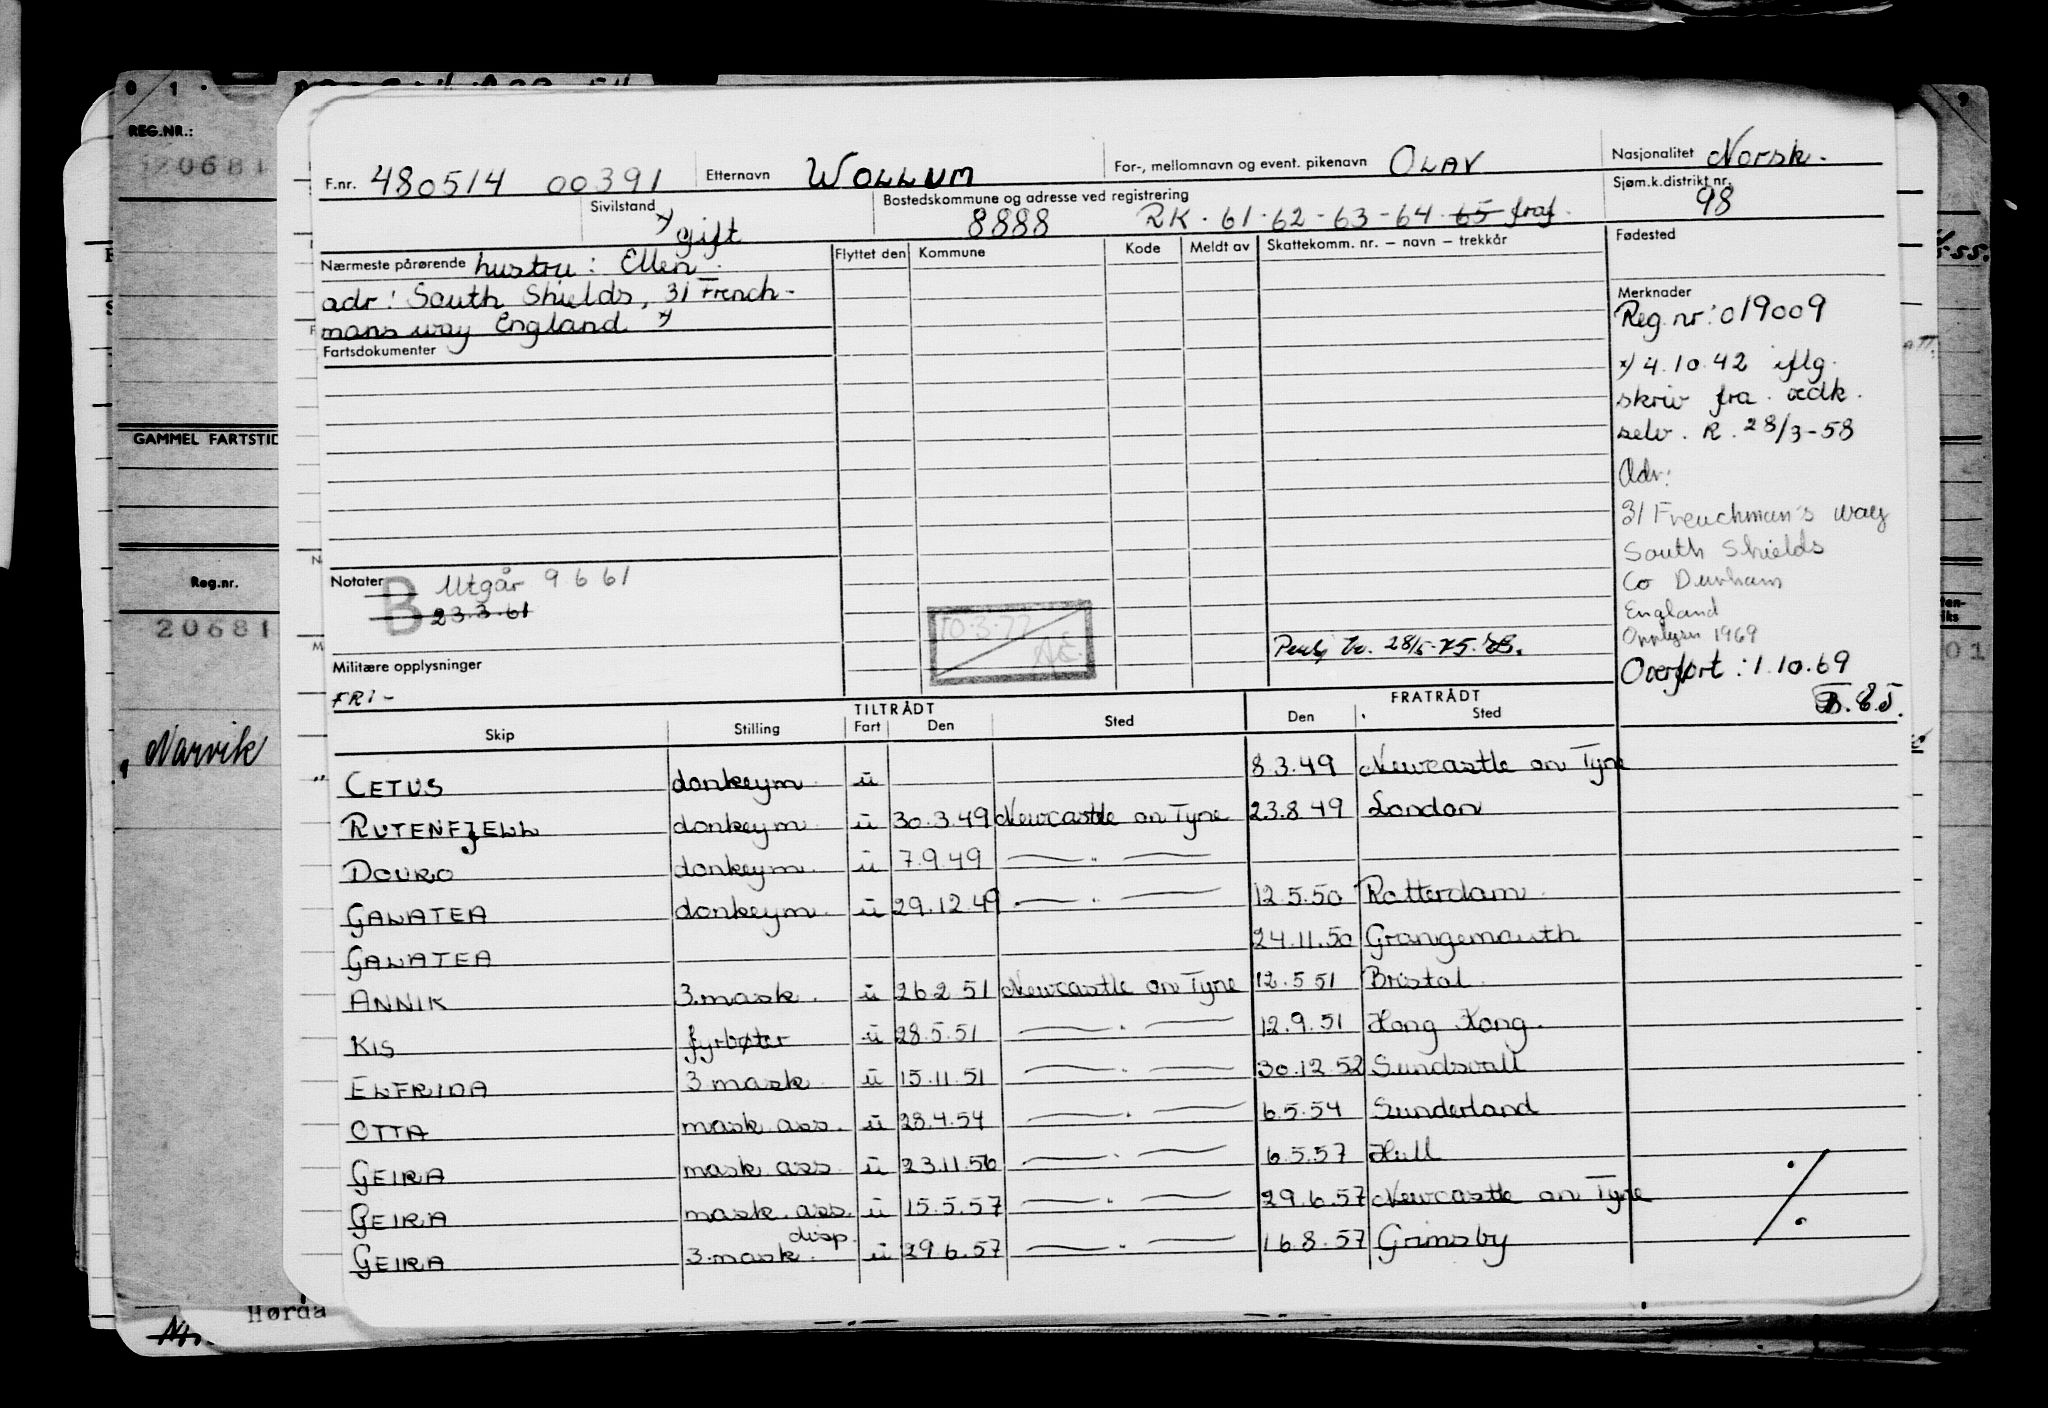 REG.NR.:
20681
GAMMEL FARTSTID
Reg.nr.
20681
Narvik
Hørda
F.nr. 480514 00391 Etternavn WOLLUM For-, mellomnavn og event. pikenavn OLAV Nasjonalitet Norsk.
Sivilstand x) gift Bostedskommune og adresse ved registrering 8888 RK. 61-62-63-64-65 Sjøm.k.distrikt nr. 98
Nærmeste pårørende hustru: Ellen
adr: South Shields, 31 French-
mans way England x)
Fartsdokumenter
Flyttet den Kommune Kode Meldt av Skattekomm. nr. – navn – trekkår
Fødested
Merknader
Reg.nr: 019009
x) 4.10.42 iflg.
skriv fra vedk.
selv. R. 28/3-58
Adr:
31 Frenchman's way
South Shields
Co Durham
England
1969
Overført: 1.10.69
Notater B Utgår 9 6 61
23.3.61
10.3.77
28/5-75.
Militære opplysninger
FRI -
TILTRÅDT FRATRÅDT
Skip Stilling Fart Den Sted Den Sted
CETUS donkeym. u 8.3.49 Newcastle on Tyne
RUTENFJELL donkeym. u 30.3.49 Newcastle on Tyne 23.8.49 London
DOURO donkeym. u 7.9.49 — " —
GALATEA donkeym. u 29.12.49 — " — 12.5.50 Rotterdam
GALATEA 24.11.50 Grangemouth
ANNIK 3.mask. u 26.2.51 Newcastle on Tyne 12.5.51 Bristol
KIS fyrbøter u 28.5.51 — " — 12.9.51 Hong Kong.
ELFRIDA 3 mask. u 15.11.51 — " — 30.12.52 Sundsvall
OTTA mask. ass. u 28.4.54 — " — 6.5.54 Sunderland
GEIRA mask ass. u 23.11.56 — " — 6.5.57 Hull
GEIRA mask. ass. u 15.5.57 — " — 29.6.57 Newcastle on Tyne
GEIRA 3.mask. disp. u 29.6.57 — " — 16.8.57 Grimsby